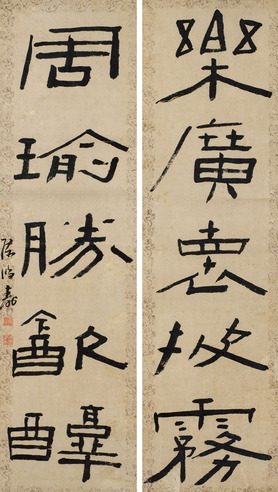 樂廣惠披霧
周瑜勝㱃醇
陳鴻壽